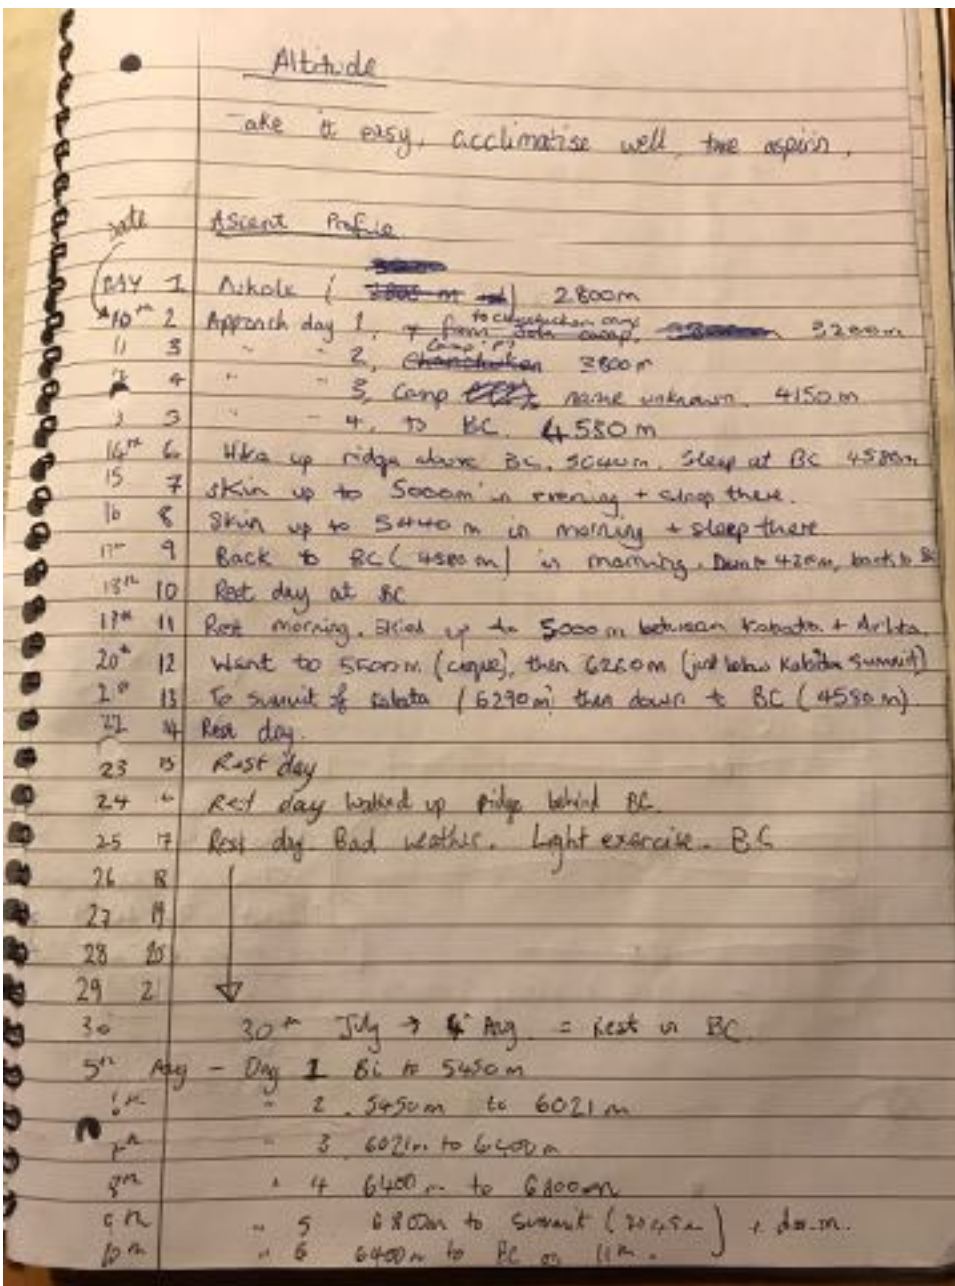 Altitude
Take it easy, acclimatise well, take aspirin.
Date Ascent Profile
DAY 1 Askole ( 2800m
10th 2 Approach day 1, to construction camp 3200m
11 3 " " 2, Camp 3800m
4 " " 3, Camp name unknown. 4150m
5 " " 4, to BC. 4580m
14th 6 Hike up ridge above BC. 5040m. Sleep at BC 4580m
15 7 Skin up to 5000m in evening + sleep there.
16 8 Skin up to 5440m in morning + sleep there
17th 9 Back to BC (4580m) in morning. Down to back to BC
18th 10 Rest day at BC
11 Rest morning. Skied up to 5000m between
20th 12 Went to 5500m then 6260m (just below summit)
13 To summit of (6290m) then down to BC (4580m).
22 14 Rest day.
23 15 Rest day
24 Rest day walked up ridge behind BC.
25 17 Rest day. Bad weather. Light exercise. BC
26 18
27 19
28 20
29 21
30 30th July → 4th Aug = Rest in BC.
5th Aug - Day 1 BC to 5450m
6th " 2 . 5450m to 6021m
7th " 3 6021m to 6400m
8th " 4 6400m to 6800m
9th " 5 6800m to summit (7045m) + down.
10th " 6 6400m to BC on 11th.